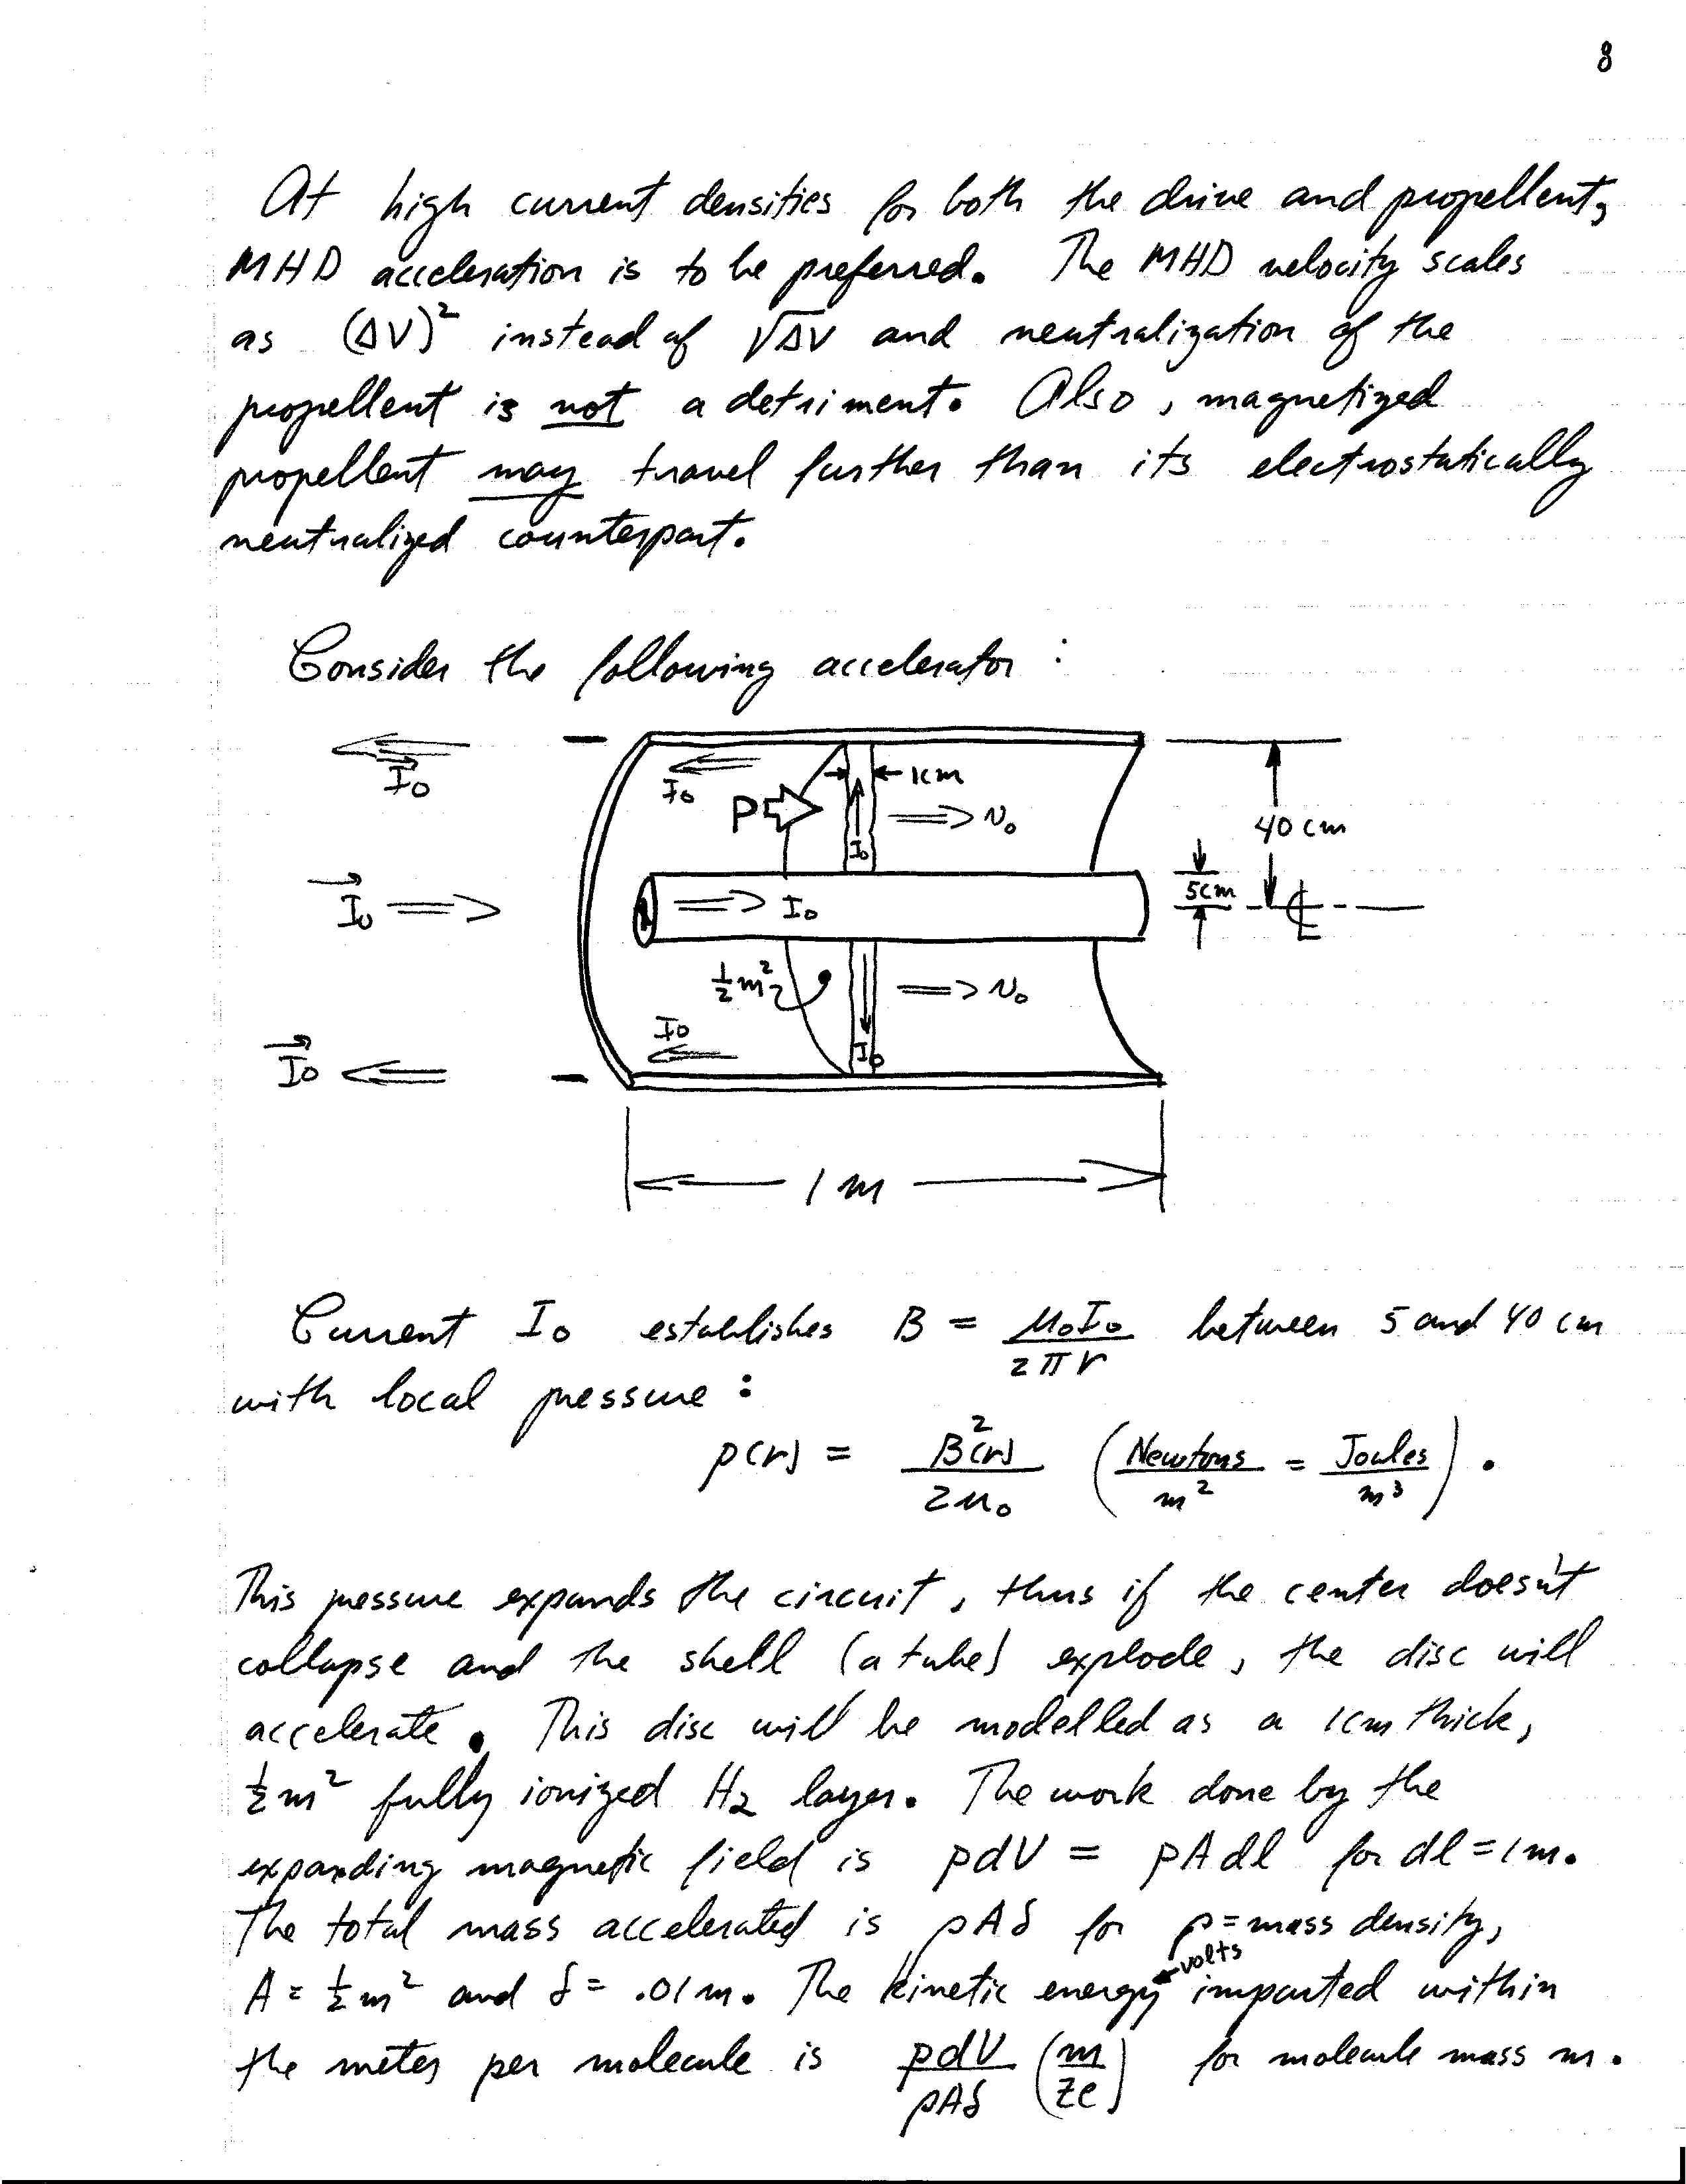 8
At high current densities for both the drive and propellent,
MHD acceleration is to be preferred. The MHD velocity scales
as (ΔV)² instead of √ΔV and neutralization of the
propellent is not a detriment. Also, magnetized
propellent may travel further than its electrostatically
neutralized counterpart.
Consider the following accelerator :
I₀
I₀
1cm
P
v₀
40 cm
I₀
I₀
I₀
5cm
℄
½m²
v₀
I₀
I₀
I₀
1 m
Current I₀ establishes B = μ₀I₀/2πr between 5 and 40 cm
with local pressure :
p(r) = B²(r)/2μ₀ (Newtons/m² = Joules/m³).
This pressure expands the circuit, thus if the center doesn't
collapse and the shell (a tube) explode, the disc will
accelerate. This disc will be modelled as a 1cm thick,
½m² fully ionized H₂ layer. The work done by the
expanding magnetic field is pdV = pAdl for dl = 1m.
The total mass accelerated is ρAδ for ρ = mass density,
volts
A = ½m² and δ = .01m. The kinetic energy imparted within
the meter per molecule is pdV/ρAδ (m/Ze) for molecule mass m.